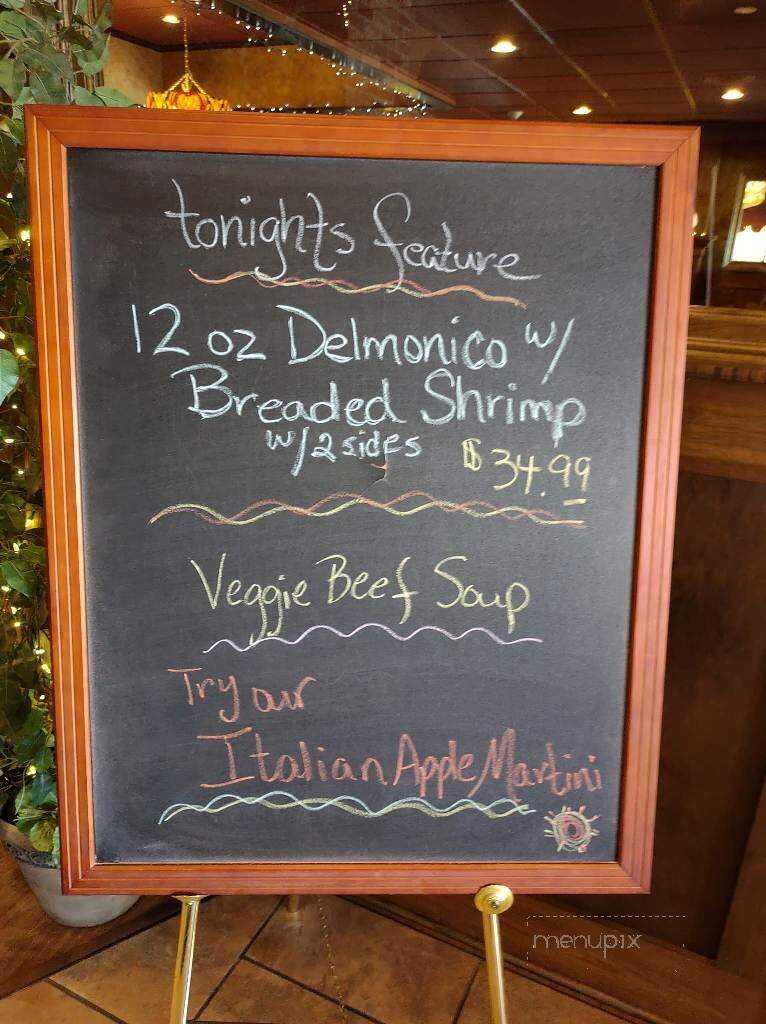 tonights feature
12 oz Delmonico w/
Breaded Shrimp
w/2 sides $34.99
Veggie Beef Soup
Try our
Italian Apple Martini
menupix